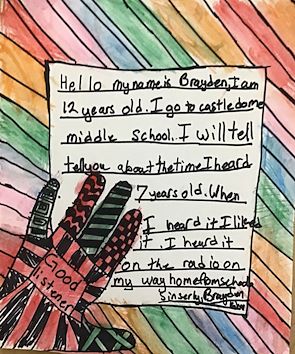 Hello my name is Brayden, I am
12 years old. I go to castledome
middle school. I will tell
tell you about the time I heard
7 years old. When
I heard it I liked
it. I heard it
on the radio on
my way home from school
Sinserly, Brayden
Good
listener